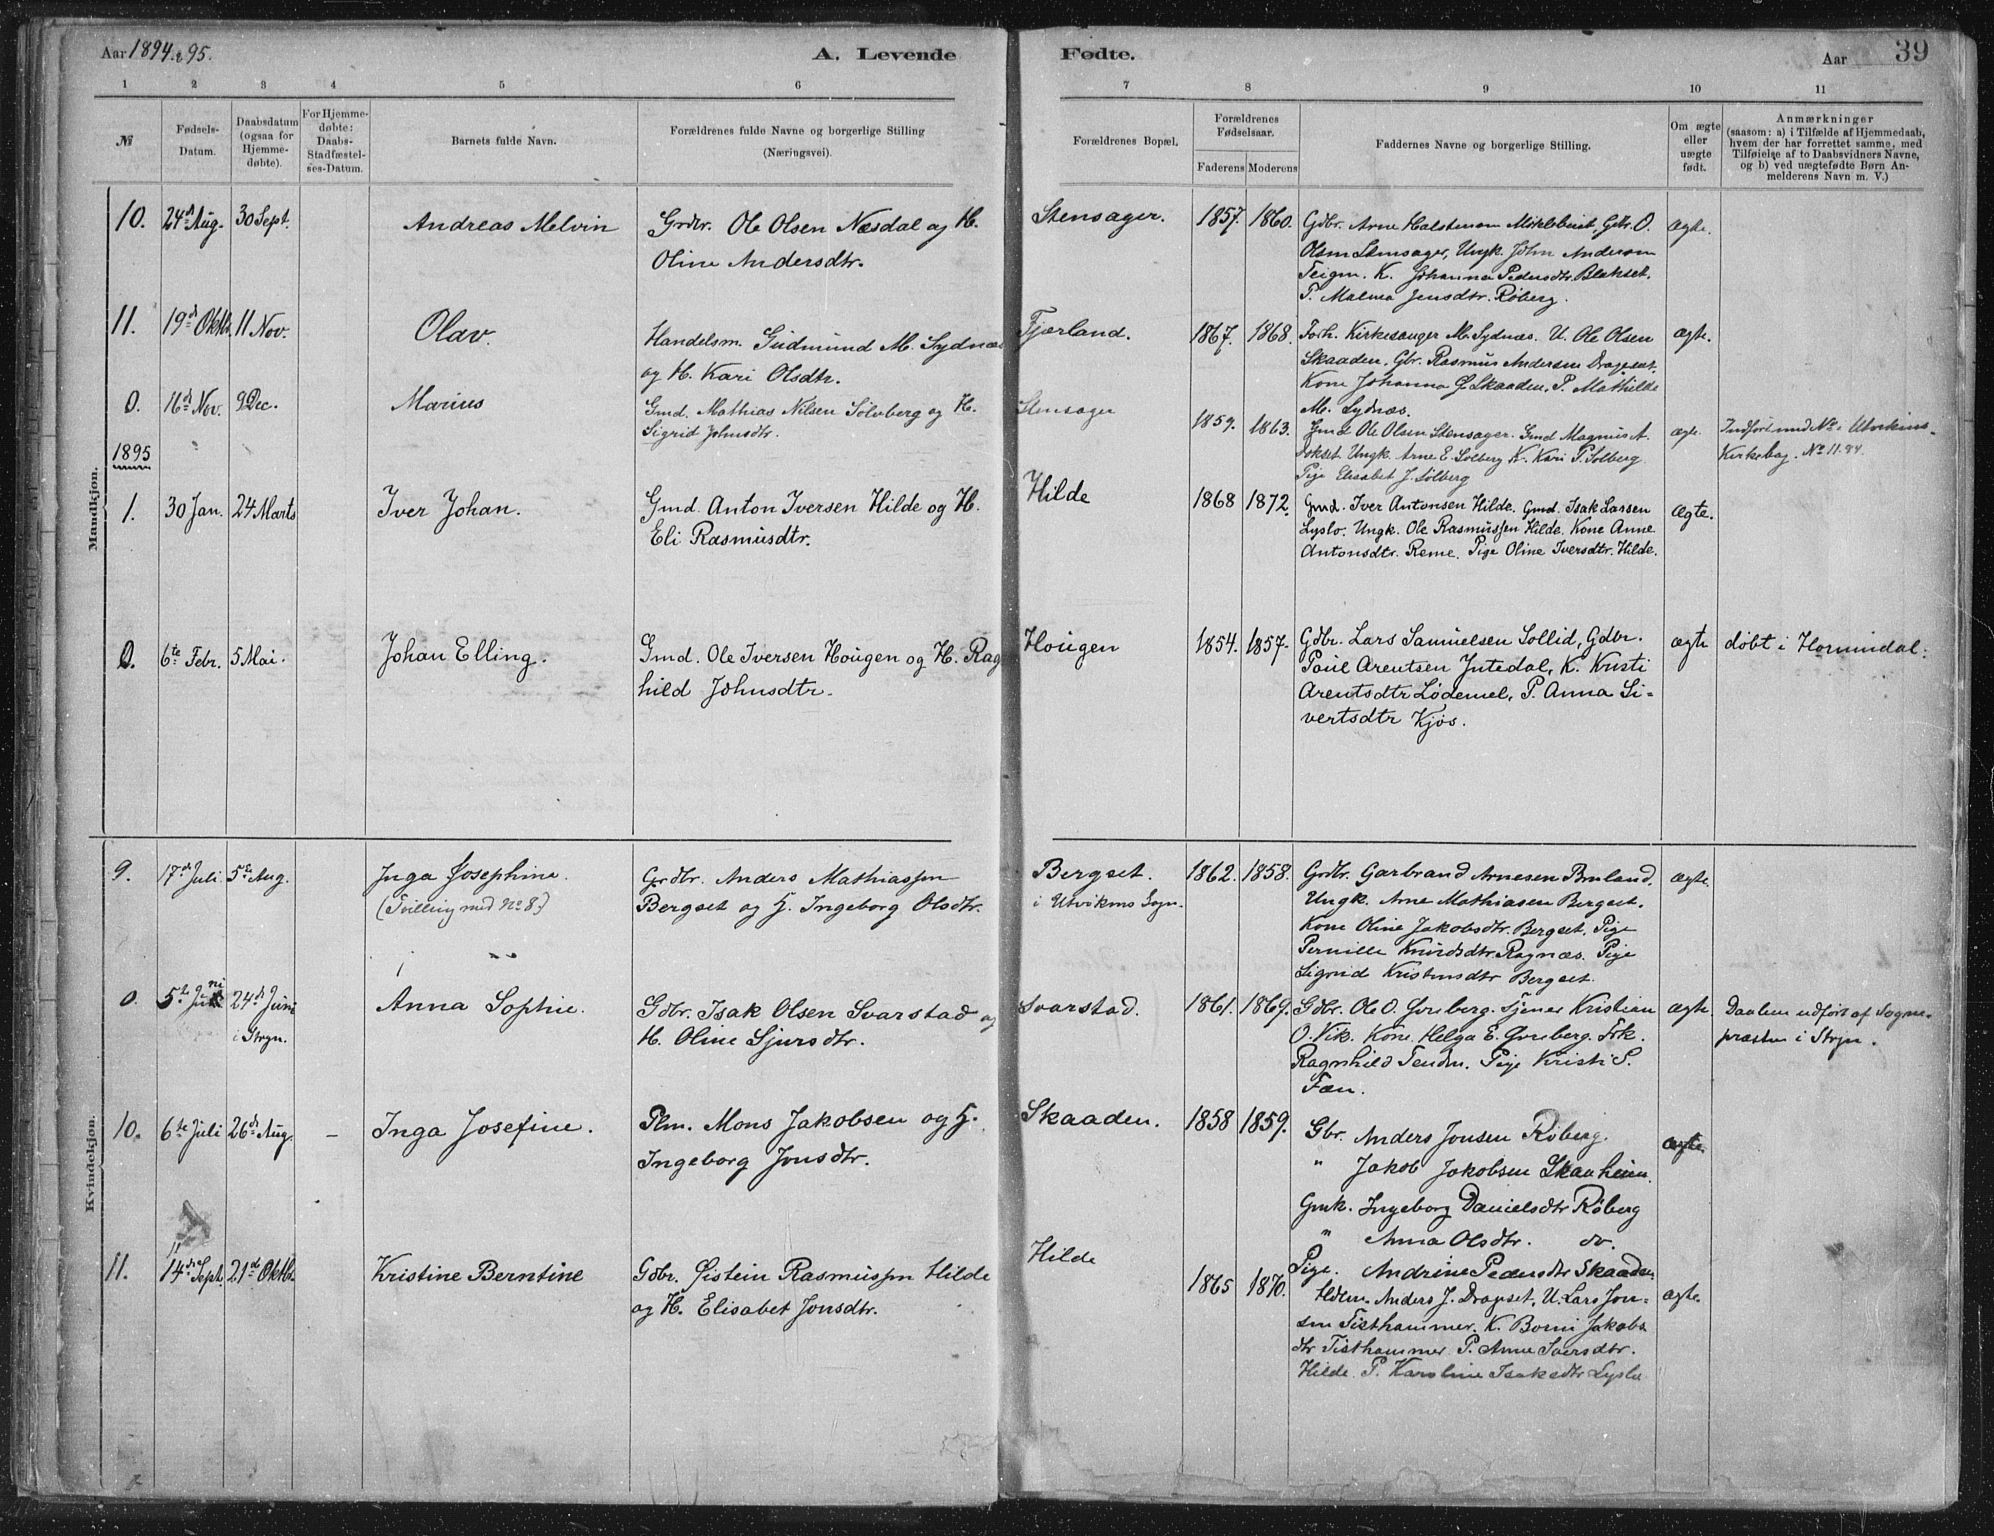 Aar 1894 & 95.
A. Levende
Fødte.
Aar
39
1 2 3 4 5 6
7 8 9 10 11
№
Fødsels-
Datum.
Daabsdatum
(ogsaa for
Hjemme-
døbte).
For Hjemme-
døbte:
Daabs-
Stadfæstel-
ses-Datum.
Barnets fulde Navn.
Forældrenes fulde Navne og borgerlige Stilling
(Næringsvei).
Forældrenes Bopæl.
Forældrenes
Fødselsaar.
Faderens Moderens
Faddernes Navne og borgerlige Stilling.
Om ægte
eller
uægte
født.
Anmærkninger
(saasom: a) i Tilfælde af Hjemmedaab,
hvem der har forrettet samme, med
Tilføielse af to Daabsvidners Navne,
og b) ved uægtefødte Børn An-
melderens Navn m. V.)
Mandkjøn.
10. 24de Aug. 30 Sept. Andreas Melvin
Grdbr. Ole Olsen Næsdal og H.
Oline Andersdtr.
Stensager. 1857. 1860.
Gdbr. Arne Halstensen Mirklebust, Gbr. O.
Olsen Stensager, Ungk. John Andersen
Teigen. K. Johanna Pedersdtr. Blakset.
P. Malena Jensdtr. Røberg.
ægte.
11. 19de Oktb. 11 Nov. Olav.
Handelsm. Gudmund M. Sydnæs
og H. Kari Olsdtr.
Fjærland. 1867. 1868.
Forh. Kirkesanger M. Sydnæs. U. Ole Olsen
Skaaden. Gbr. Rasmus Andersen Drageset.
Kone Johanna Skaaden. P. Mathilde
M. Sydnæs.
ægte.
0. 16de Nov. 9 Dec. Marius
Gmd. Mathias Nilsen Sølvberg og H.
Sigrid Johnsdtr.
Stensager 1859. 1863.
Gmd Ole Olsen Stensager. Gmd Magnus A.
Ungk. Arne E. Solberg K. Kari P. Solberg
Pige Elisabet J. Solberg
ægte.
Indført med No i Utvikens
Kirkebog. No 11. 94.
1895
1. 30 Jan. 24 Marts Iver Johan.
Gmd. Anton Iversen Hilde og H.
Eli Rasmusdtr.
Hilde 1868 1872.
Gmd. Iver Antonsen Hilde. Gmd. Isak Larsen
Lyslo. Ungk. Ole Rasmussen Hilde. Kone Anne
Antonsdtr. Reme. Pige Oline Iversdtr. Hilde.
ægte.
0. 6te Febr. 5 Mai. Johan Elling.
Gmd. Ole Iversen Hougen og H. Rag
hild Johnsdtr.
Hougen 1854. 1857.
Gdbr. Lars Samuelsen Sollid, Gdbr.
Poul Arentsen Ytedal, K. Kristi
Arentsdtr Lødemel, P. Anna Si-
vertsdtr Kjøs.
ægte
døbt i Hornindal.
Kvindekjøn.
9. 17de Juli 5te Aug. Inga Josephine.
(Tvilling med No 8.)
Grdbr. Anders Mathiassen
Bergset og H. Ingeborg Olsdtr.
Bergset.
i Utvikens Sogn.
1862. 1858.
Grdbr. Garbrand Arnesen Bruland,
Ungk. Arne Mathiasen Bergset.
Kone Oline Jakobsdtr. Bergset. Pige
Pernille Knudsdtr. Ragnæs. Pige
Sigrid Kristensdtr Bergset.
ægte.
0. 5te Juni 24de Juni
i Stryn.
Anna Sophie.
Gdbr. Isak Olsen Svarstad og
H. Oline Sjursdtr.
Svarstad. 1861. 1869.
Gdbr. Ole O. Gruberg. Tjener Kristian
O. Vik. Kone Helga E. Gruberg. Frk.
Ragnhild Tenden. Pige Kristi S.
Fæn.
ægte.
Daaben udført af Sogne-
præsten i Stryn.
10. 6te Juli 26de Aug. – Inga Josefine.
Plm. Mons Jakobsen og H.
Ingeborg Jonsdtr.
Skaaden. 1858 1859.
Gbr. Anders Jonsen Røberg.
" Jakob Jakobsen Skaaheim.
Gmk. Ingeborg Danielsdtr Røberg
" Anna Olsdtr. do.
Pige. Andrine Pedersdtr Skaaden
ægte.
11. 14de Sept. 21de Oktb. Kristine Berntine
Gdbr. Øistein Rasmussen Hilde
og H. Elisabet Jonsdtr.
Hilde
1865 1870.
Anders J. Dragset, U. Lars Jon-
sen Tisthammer. K. Borni Jakobs
dtr Tisthammer P. Anne Iversdtr.
Hilde. P. Karoline Isaksdtr Lyslo
ægte.